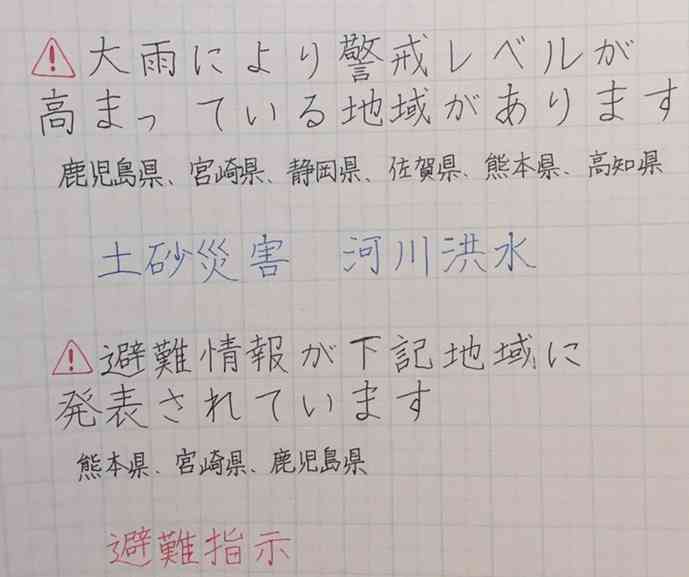 ⚠大雨により警戒レベルが
高まっている地域があります
鹿児島県、宮崎県、静岡県、佐賀県、熊本県、高知県
土砂災害 河川洪水
⚠避難情報が下記地域に
発表されています
熊本県、宮崎県、鹿児島県
避難指示